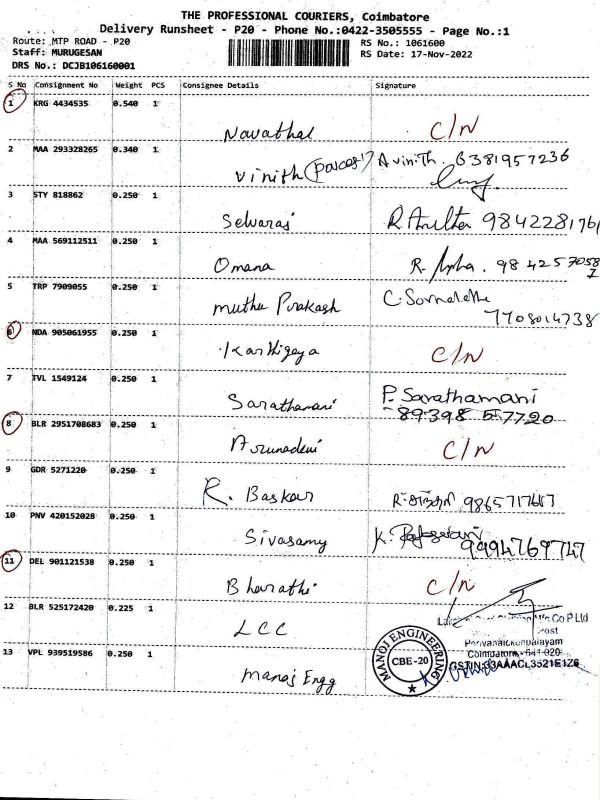 THE PROFESSIONAL COURIERS, Coimbatore
Delivery Runsheet - P20 - Phone No.:0422-3505555 - Page No.:1
Route: MTP ROAD - P20
RS No.: 1061600
Staff: MURUGESAN
RS Date: 17-Nov-2022
DRS No.: DCJB106160001
S No Consignment No Weight PCS Consignee Details Signature
1 KRG 4434535 0.540 1
Navathal C/N
2 MAA 293328265 0.340 1
Vinith (parcel) A vinith. 6381957236
3 STY 818862 0.250 1
Selvaraj 9842281761
4 MAA 569112511 0.250 1
Omana R.
5 TRP 7909055 0.250 1
muthu Prakash C.
7708014738
6 NDA 905061955 0.250 1
Karthigaya C/N
7 TVL 1549124 0.250 1
Sarathamani P. Sarathamani
89398 57720
8 BLR 2951708683 0.250 1
Arunadevi C/N
9 GDR 5271220 0.250 1
R. Baskar
10 PNV 420152028 0.250 1
Sivasamy K. 9994769747
11 DEL 901121538 0.250 1
Bharathi C/N
12 BLR 525172420 0.225 1
LCC
Mfg Co P Ltd
Post
Perianaickenpalayam
Coimbatore - 641 020
13 VPL 939519586 0.250 1
GSTIN:33AAACL3521E1Z6
Manoj Engg
MANOJ ENGINEERING
CBE-20